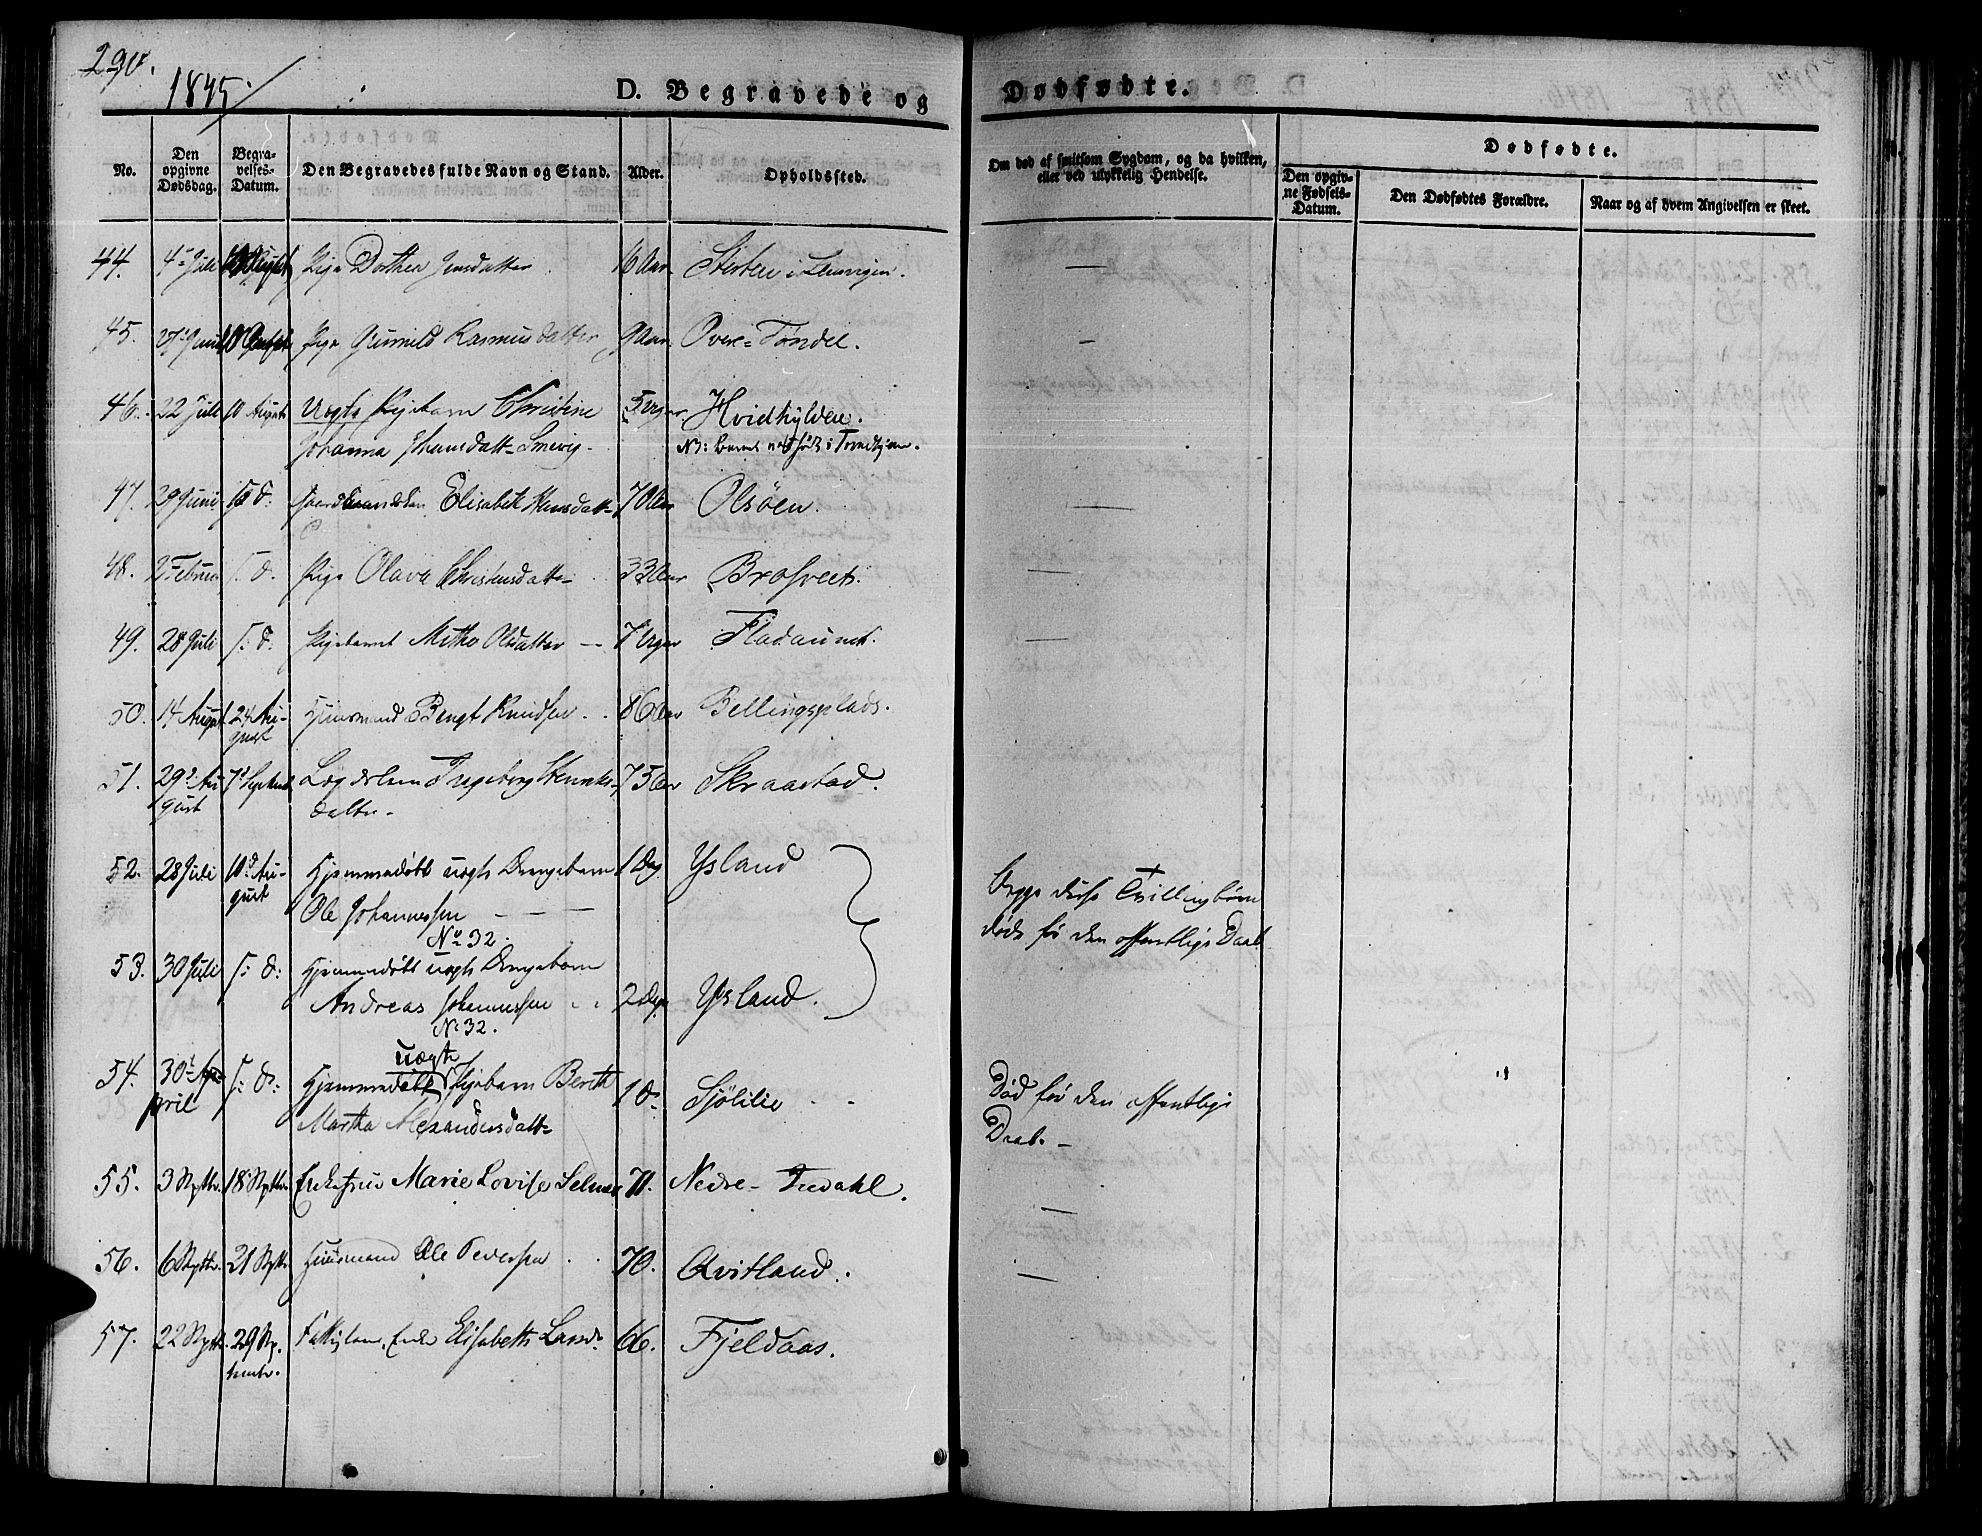 290.
1845.
D. Begravede og Dødfødte.
No.
Den opgivne Dødsdag.
Begravelses-Datum.
Den Begravedes fulde Navn og Stand.
Alder.
Opholdssted.
Om død af smitsom Sygdom, og da hvilken, eller ved ulykkelig Hendelse.
Dødfødte.
Den opgivne Fødsels-Datum.
Den Dødfødtes Forældre.
Naar og af hvem Angivelsen er skeet.
44. 4 Juli 10 August Pige Dorthea Jensdatter 16 Aar —
45. Juni 10 August Pige Gunnild Rasmusdatter 9 Aar Over-Tøndel. —
46. 22 Juli 10 August Uægte Pigebarn Christine 5 Uger Hvidhylden.
Johanna NB: Barnet var født i Trondhjem.
47. 29 Juni s: d: Elisabeth Hansdatt 70 Aar Olsöen. —
48. 2 Februar s. d. Pige Olava Christensdatt 33 Aar —
49. 28 Juli s: d: Pigebarnet Olsdatter 7 Uger Fladaunet. —
50. 14 August 24 August Huusmand Bengt Knudsen 86 Aar Bellingsplads.
51. 29 August 7 Septemb Ingeborg 75 Aar Skraastad.
datter
52. 28 Juli 10 August Hjemmedøbt uægte Drengebarn 1 Dag Ysland
Ole Johannessen Begge disse Tvillingbørn
No 32. døde før den offentlige Daab
53. 30 Juli s: d: Hjemmedøbt uægte Drengebarn
Andreas Johannessen 2 Dage Ysland.
No 32.
uægte
54. 30 April s: d: Hjemmedøbt Pigebarn Bereth 1 d. Sjölilie Død før den offentlige
Martha Alexandersdatt Daab. —
55. 3 Septbr. 18 Septbr. Enkefrue Marie Lovise Selmer 71. Nedre- —
56. 6 Septbr. 21 Septbr. Huusmand Ole Pedersen 70. Qvitland. —
57. 22 Septbr. 29 September. Enke Elisabeth 66. Fjeldaas.